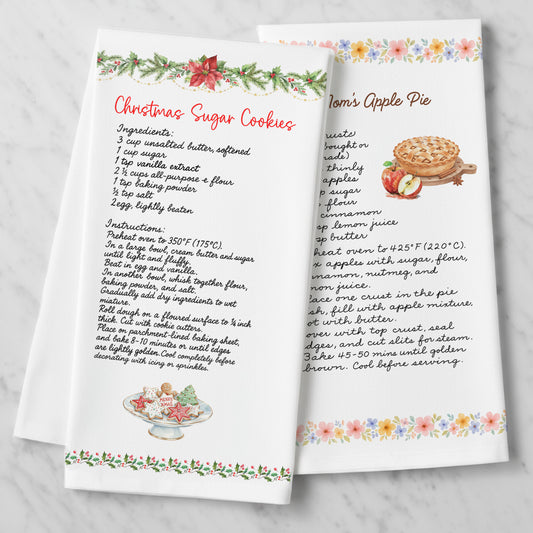 Christmas Sugar Cookies
Ingredients:
3 cup unsalted butter, softened
1 cup sugar
1 tsp vanilla extract
2 ½ cups all-purpose e flour
1 tsp baking powder
½ tsp salt
2egg, lightly beaten
Instructions:
Preheat oven to 350°F (175°C).
In a large bowl, cream butter and sugar
until light and fluffy.
Beat in egg and vanilla.
In another bowl, whisk together flour,
baking powder, and salt.
Gradually add dry ingredients to wet
mixture.
Roll dough on a floured surface to ¼ inch
thick. Cut with cookie cutters.
Place on parchment-lined baking sheet,
and bake 8-10 minutes or until edges
are lightly golden. Cool completely before
decorating with icing or sprinkles.
MERRY
XMAS
Mom's Apple Pie
bought or
thinly
apples
sugar
flour
cinnamon
lemon juice
butter
heat oven to 425°F (220°C).
apples with sugar, flour,
nnamon, nutmeg, and
mon juice.
lace one crust in the pie
sh, fill with apple mixture,
ot with butter.
over with top crust, seal
dges, and cut slits for steam.
Bake 45-50 mins until golden
brown. Cool before serving.